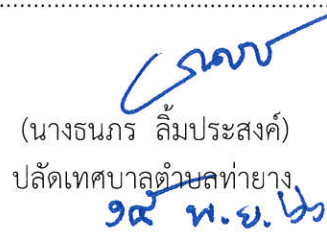 (นางธนภร ลิ้มประสงค์)
ปลัดเทศบาลตำบลท่ายาง
๑๕ พ.ย. ๖๖